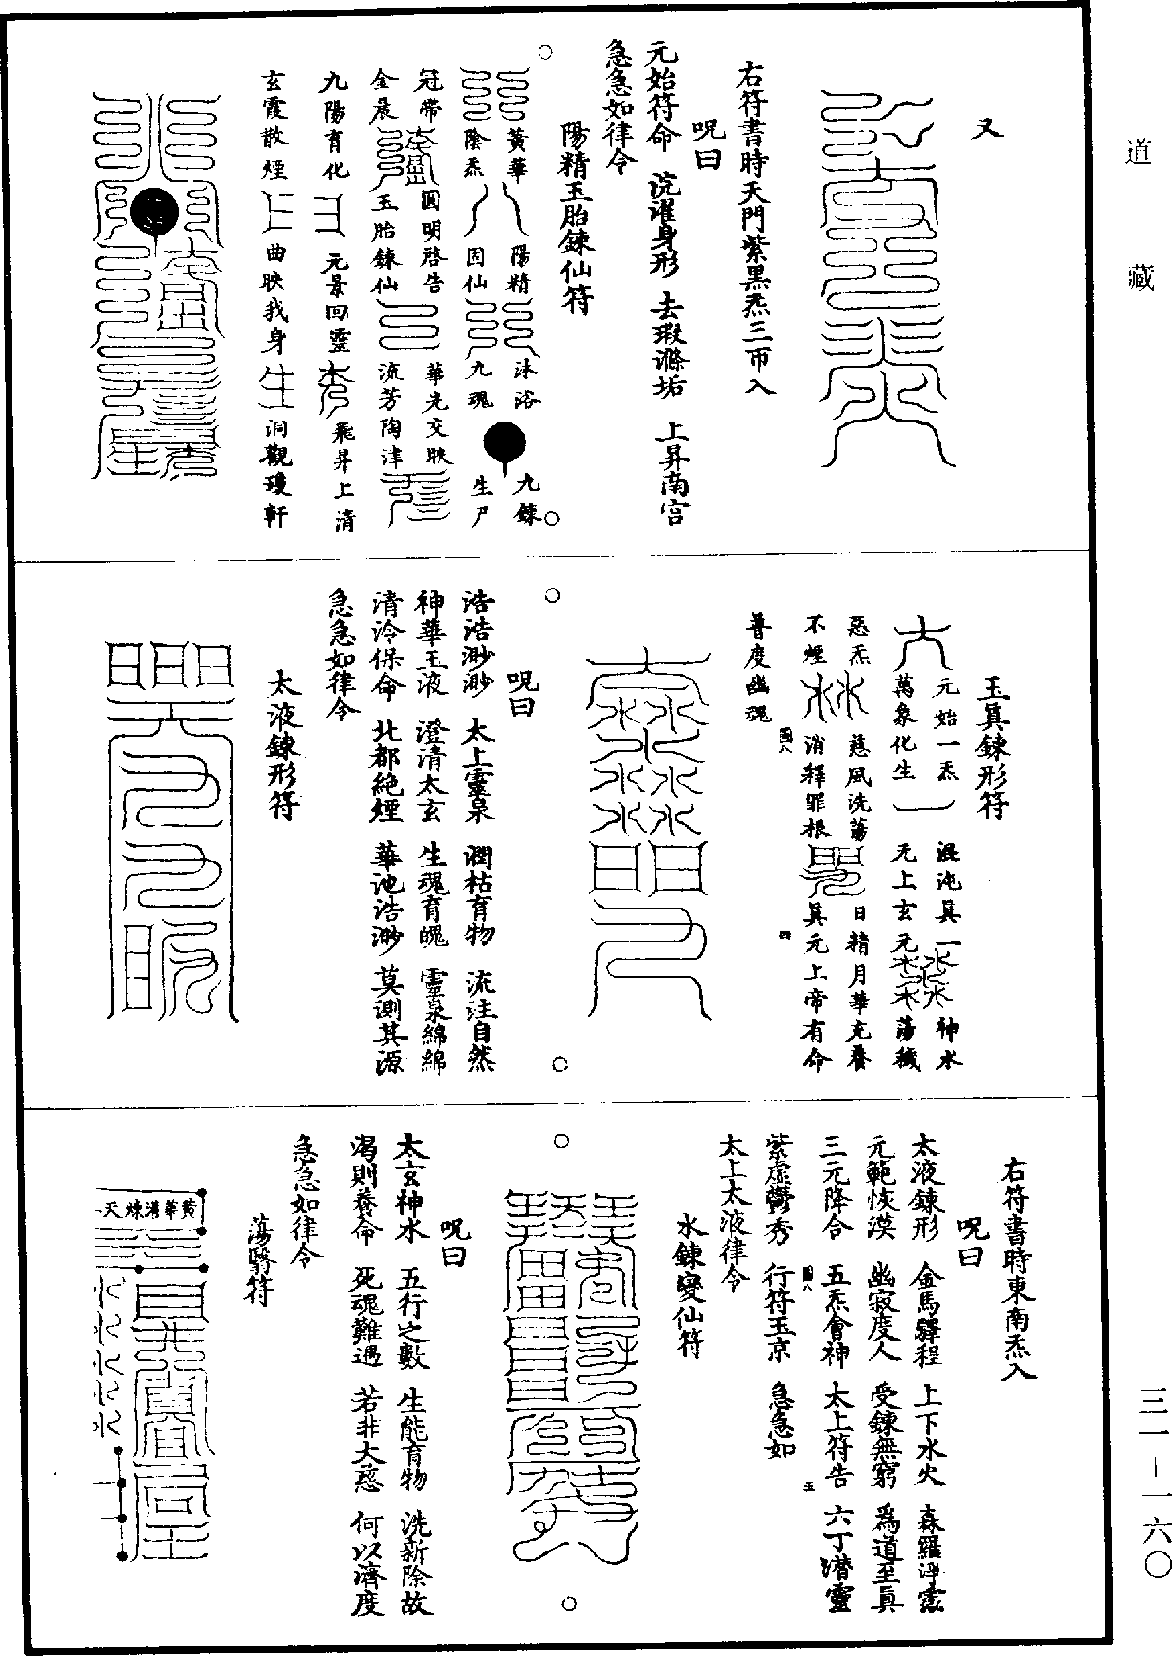 道藏
三一－一六〇
又
右符書時天門紫黑炁三帀入
呪曰
元始符命　浣濯身形　去瑕滌垢　上昇南宮
急急如律令
陽精玉胎鍊仙符
黃華　陽精　沐浴　九鍊
陰炁　固仙　九魂　生尸
冠帶　圓明啓告　華光交映
金晨　玉胎鍊仙　流芳陶津
九陽育化　元景回靈　飛昇上清
玄霞散煙　曲映我身　洞觀瓊軒
玉眞鍊形符
元始一炁　混沌眞一　神水
萬象化生　元上玄元　蕩穢
惡炁　慈風洗蕩　日精月華充養
不煙　消釋罪根　眞元上帝有命
普度幽魂
呪曰
浩浩渺渺　太上靈泉　潤枯育物　流注自然
神華玉液　澄清太玄　生魂育魄　靈泉綿綿
清泠保命　北都絶煙　華池浩渺　莫測其源
急急如律令
太液鍊形符
右符書時東南炁入
呪曰
太液鍊形　金馬驛程　上下水火　森羅淨
元範恢漠　幽寂度人　受鍊無窮　爲道至眞
三元降合　五炁會神　太上符告　六丁潛靈
紫虛鬱秀　行符玉京　急急如
太上太液律令
水鍊變仙符
呪曰
太玄神水　五行之數　生能育物　洗新除故
渴則養命　死魂難遇　若非大慈　何以濟度
急急如律令
蕩翳符
黃華蕩煉天